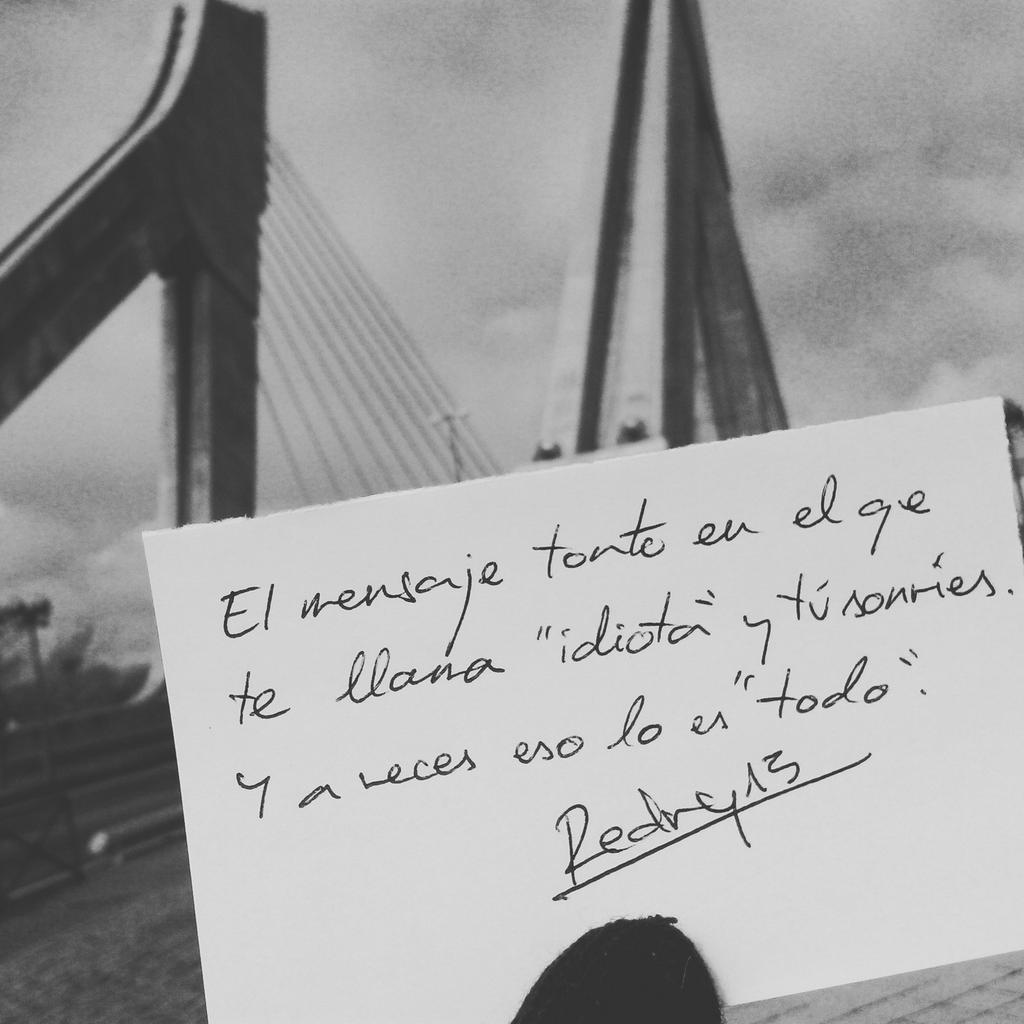 El mensaje tonto en el qe
te llama "idiota" y tú sonríes.
Y a veces eso lo es "todo".
Redry13